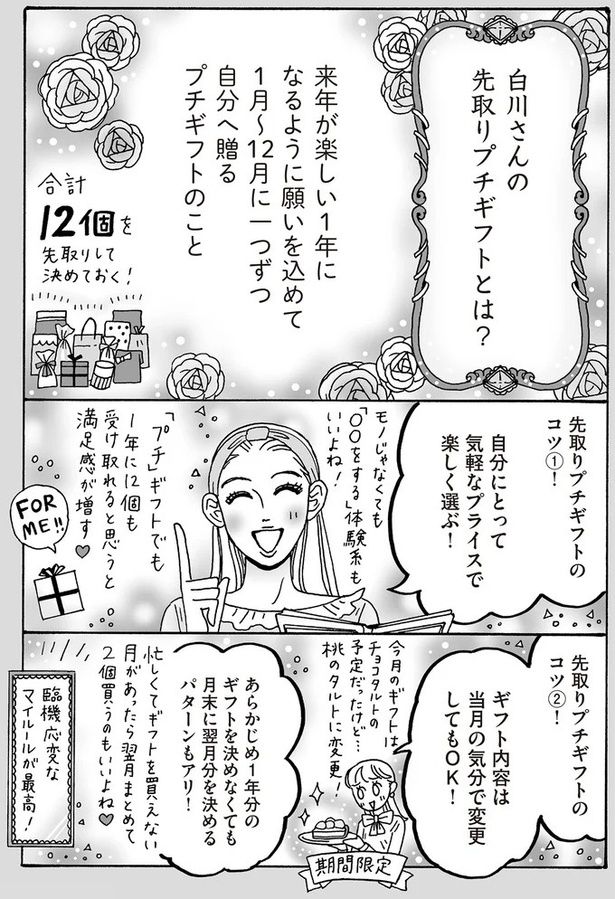 白川さんの
先取りプチギフトとは？
来年が楽しい１年に
なるように願いを込めて
１月～12月に一つずつ
自分へ贈る
プチギフトのこと
合計
12個を
先取りして
決めておく！
先取りプチギフトの
コツ①！
自分にとって
気軽なプライスで
楽しく選ぶ！
モノじゃなくても
「〇〇をする」体験系も
いいよね！
「プチ」ギフトでも
１年に12個も
受け取れると思うと
満足感が増す♥
FOR
ME!!
先取りプチギフトの
コツ②！
ギフト内容は
当月の気分で変更
してもOK！
今月のギフトは
チョコタルトの
予定だったけど…
桃のタルトに変更！
期間限定
あらかじめ１年分の
ギフトを決めなくても
月末に翌月分を決める
パターンもアリ！
忙しくてギフトを買えない
月があったら翌月まとめて
２個買うのもいいよね♥
臨機応変な
マイルールが最高！